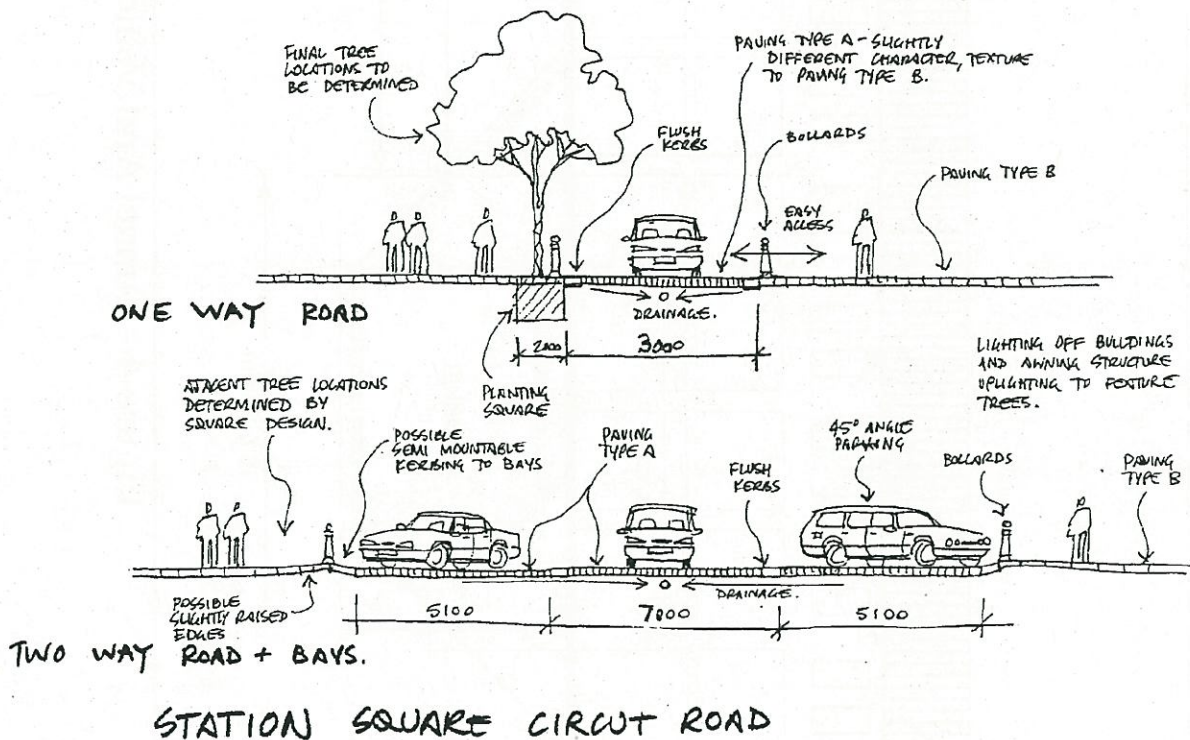 FINAL TREE
LOCATIONS TO
BE DETERMINED
PAVING TYPE A - SLIGHTLY
DIFFERENT CHARACTER, TEXTURE
TO PAVING TYPE B.
FLUSH
KERBS
BOLLARDS
PAVING TYPE B
EASY
ACCESS
ONE WAY ROAD
DRAINAGE.
2000
3000
PLANTING
SQUARE
LIGHTING OFF BUILDINGS
AND AWNING STRUCTURE
UPLIGHTING TO FEATURE
TREES.
ADJACENT TREE LOCATIONS
DETERMINED BY
SQUARE DESIGN.
POSSIBLE
SEMI MOUNTABLE
KERBING TO BAYS
PAVING
TYPE A
FLUSH
KERBS
45° ANGLE
PARKING
BOLLARDS
PAVING
TYPE B
POSSIBLE
SLIGHTLY RAISED
EDGES
DRAINAGE.
5100
7000
5100
TWO WAY ROAD + BAYS.
STATION SQUARE CIRCUT ROAD